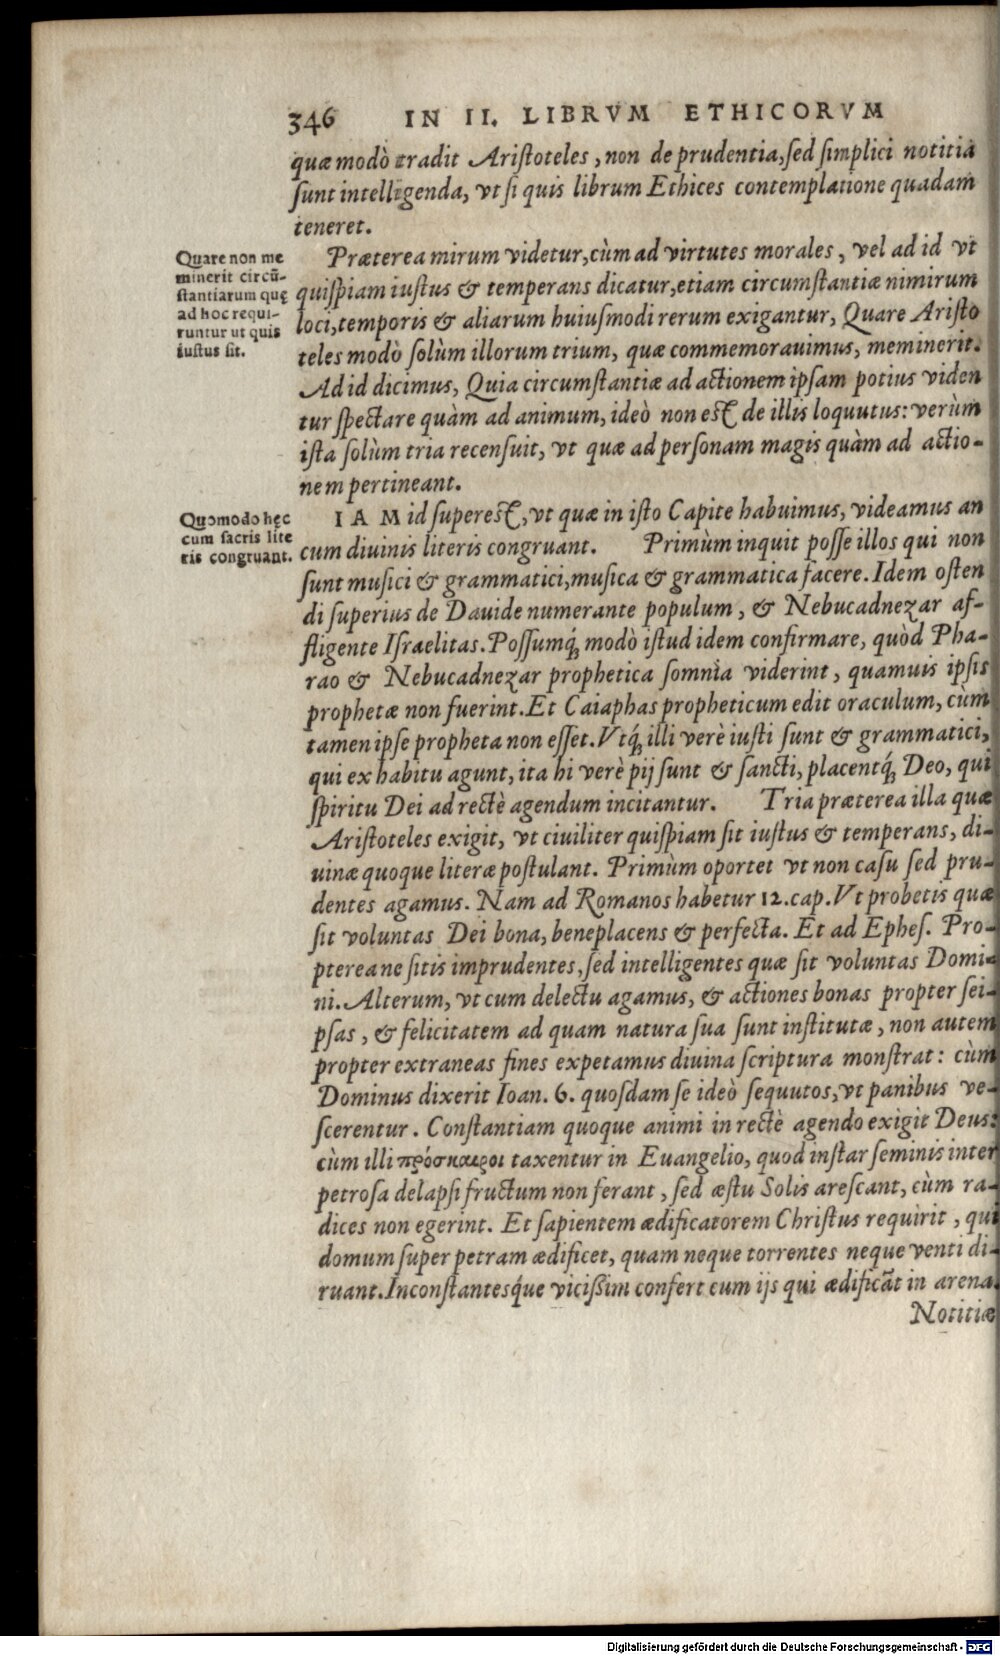 346 IN II. LIBRVM ETHICORVM
quæ modò tradit Aristoteles, non de prudentia, sed simplici notitia
sunt intelligenda, vt si quis librum Ethices contemplatione quadam
teneret.
Quare non me
minerit circũ-
stantiarum quę
ad hoc requi-
runtur ut quis
iustus sit.
Præterea mirum videtur, cùm ad virtutes morales, vel ad id vt
quispiam iustus & temperans dicatur, etiam circumstantiæ nimirum
loci, temporis & aliarum huiusmodi rerum exigantur, Quare Aristo
teles modò solùm illorum trium, quæ commemorauimus, meminerit.
Ad id dicimus, Quia circumstantiæ ad actionem ipsam potius viden
tur spectare quàm ad animum, ideò non est de illis loquutus: verùm
ista solùm tria recensuit, vt quæ ad personam magis quàm ad actio-
nem pertineant.
Quomodo hęc
cum sacris lite
ris congruant.
IAM id superest, vt quæ in isto Capite habuimus, videamus an
cum diuinis literis congruant. Primùm inquit posse illos qui non
sunt musici & grammatici, musica & grammatica facere. Idem osten
di superius de Dauide numerante populum, & Nebucadnezar af-
fligente Israelitas. Possumq́; modò istud idem confirmare, quòd Pha-
rao & Nebucadnezar prophetica somnia viderint, quamuis ipsis
prophetæ non fuerint. Et Caiaphas propheticum edit oraculum, cùm
tamen ipse propheta non esset. Vtq́; illi verè iusti sunt & grammatici,
qui ex habitu agunt, ita hi verè pij sunt & sancti, placentq́; Deo, qui
spiritu Dei ad rectè agendum incitantur. Tria præterea illa quæ
Aristoteles exigit, vt ciuiliter quispiam sit iustus & temperans, di-
uinæ quoque literæ postulant. Primùm oportet vt non casu sed pru-
dentes agamus. Nam ad Romanos habetur 12. cap. Vt probetis quæ
sit voluntas Dei bona, beneplacens & perfecta. Et ad Ephes. Pro-
pterea ne sitis imprudentes, sed intelligentes quæ sit voluntas Domi-
ni. Alterum, vt cum delectu agamus, & actiones bonas propter sei-
psas, & felicitatem ad quam natura sua sunt institutæ, non autem
propter extraneas fines expetamus diuina scriptura monstrat: cùm
Dominus dixerit Ioan. 6. quosdam se ideò sequutos, vt panibus ve-
scerentur. Constantiam quoque animi in rectè agendo exigit Deus:
cùm illi πρόσκαιροι taxentur in Euangelio, quod instar seminis inter
petrosa delapsi fructum non ferant, sed æstu Solis arescant, cùm ra-
dices non egerint. Et sapientem ædificatorem Christus requirit, qui
domum super petram ædificet, quam neque torrentes neque venti di-
ruant. Inconstantesq́ue vicißim confert cum ijs qui ædificãt in arena.
Notitiæ
Digitalisierung gefördert durch die Deutsche Forschungsgemeinschaft - DFG